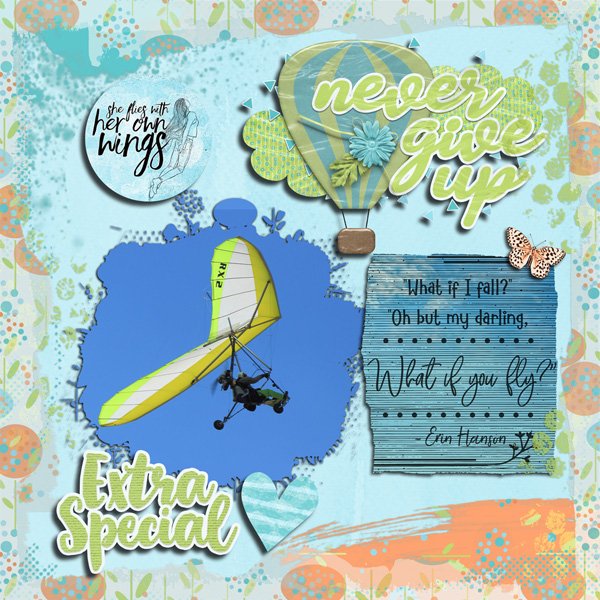 she flies with
her own
wings
never
give
up
RX2
"What if I fall?"
"Oh but my darling,
What if you fly?"
~ Erin Hanson
Extra
Special